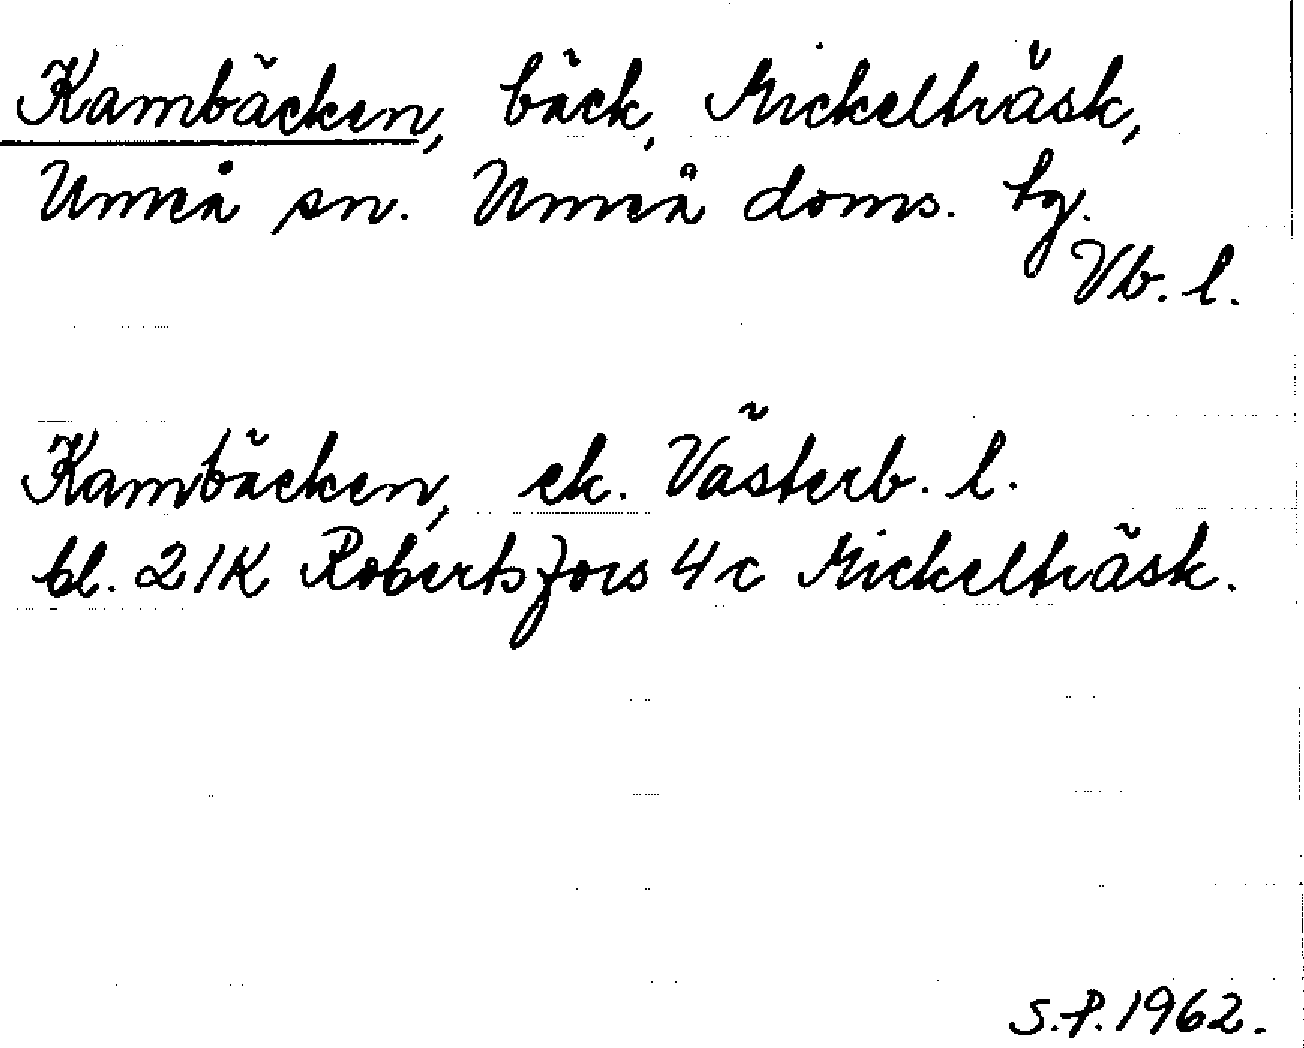 Kambäcken, bäck, Mickelträsk,
Umeå sn. Umeå doms. tg.
Vb. l.
Kambäcken, ek. Västerb. l.
bl. 21K Robertsfors 4c Mickelträsk.
S.P. 1962.